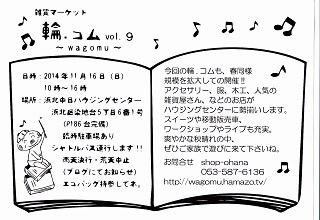 雑貨マーケット
輪.コム vol.9
～wagomu～
日時：2014年11月16日（日）
10時～16時
場所：浜北中日ハウジングセンター
浜北区染地台5丁目6番1号
(P186台完備)
臨時駐車場あり
シャトルバス運行します!!
雨天決行・荒天中止
(ブログにてお知らせ)
エコバッグ持参して下さい。
今回の輪.コムも、春同様
規模を拡大しての開催!!
アクセサリー、服、木工、人気の
雑貨屋さん、などのお店が
ハウジングセンターに勢揃いします。
スイーツや移動販売車、
ワークショップやライブも充実。
爽やかな秋晴れの中、
ぜひご家族で遊びに来て下さいね。
お問合せ shop-ohana
053-587-6136
http://wagomu.hamazo.tv/